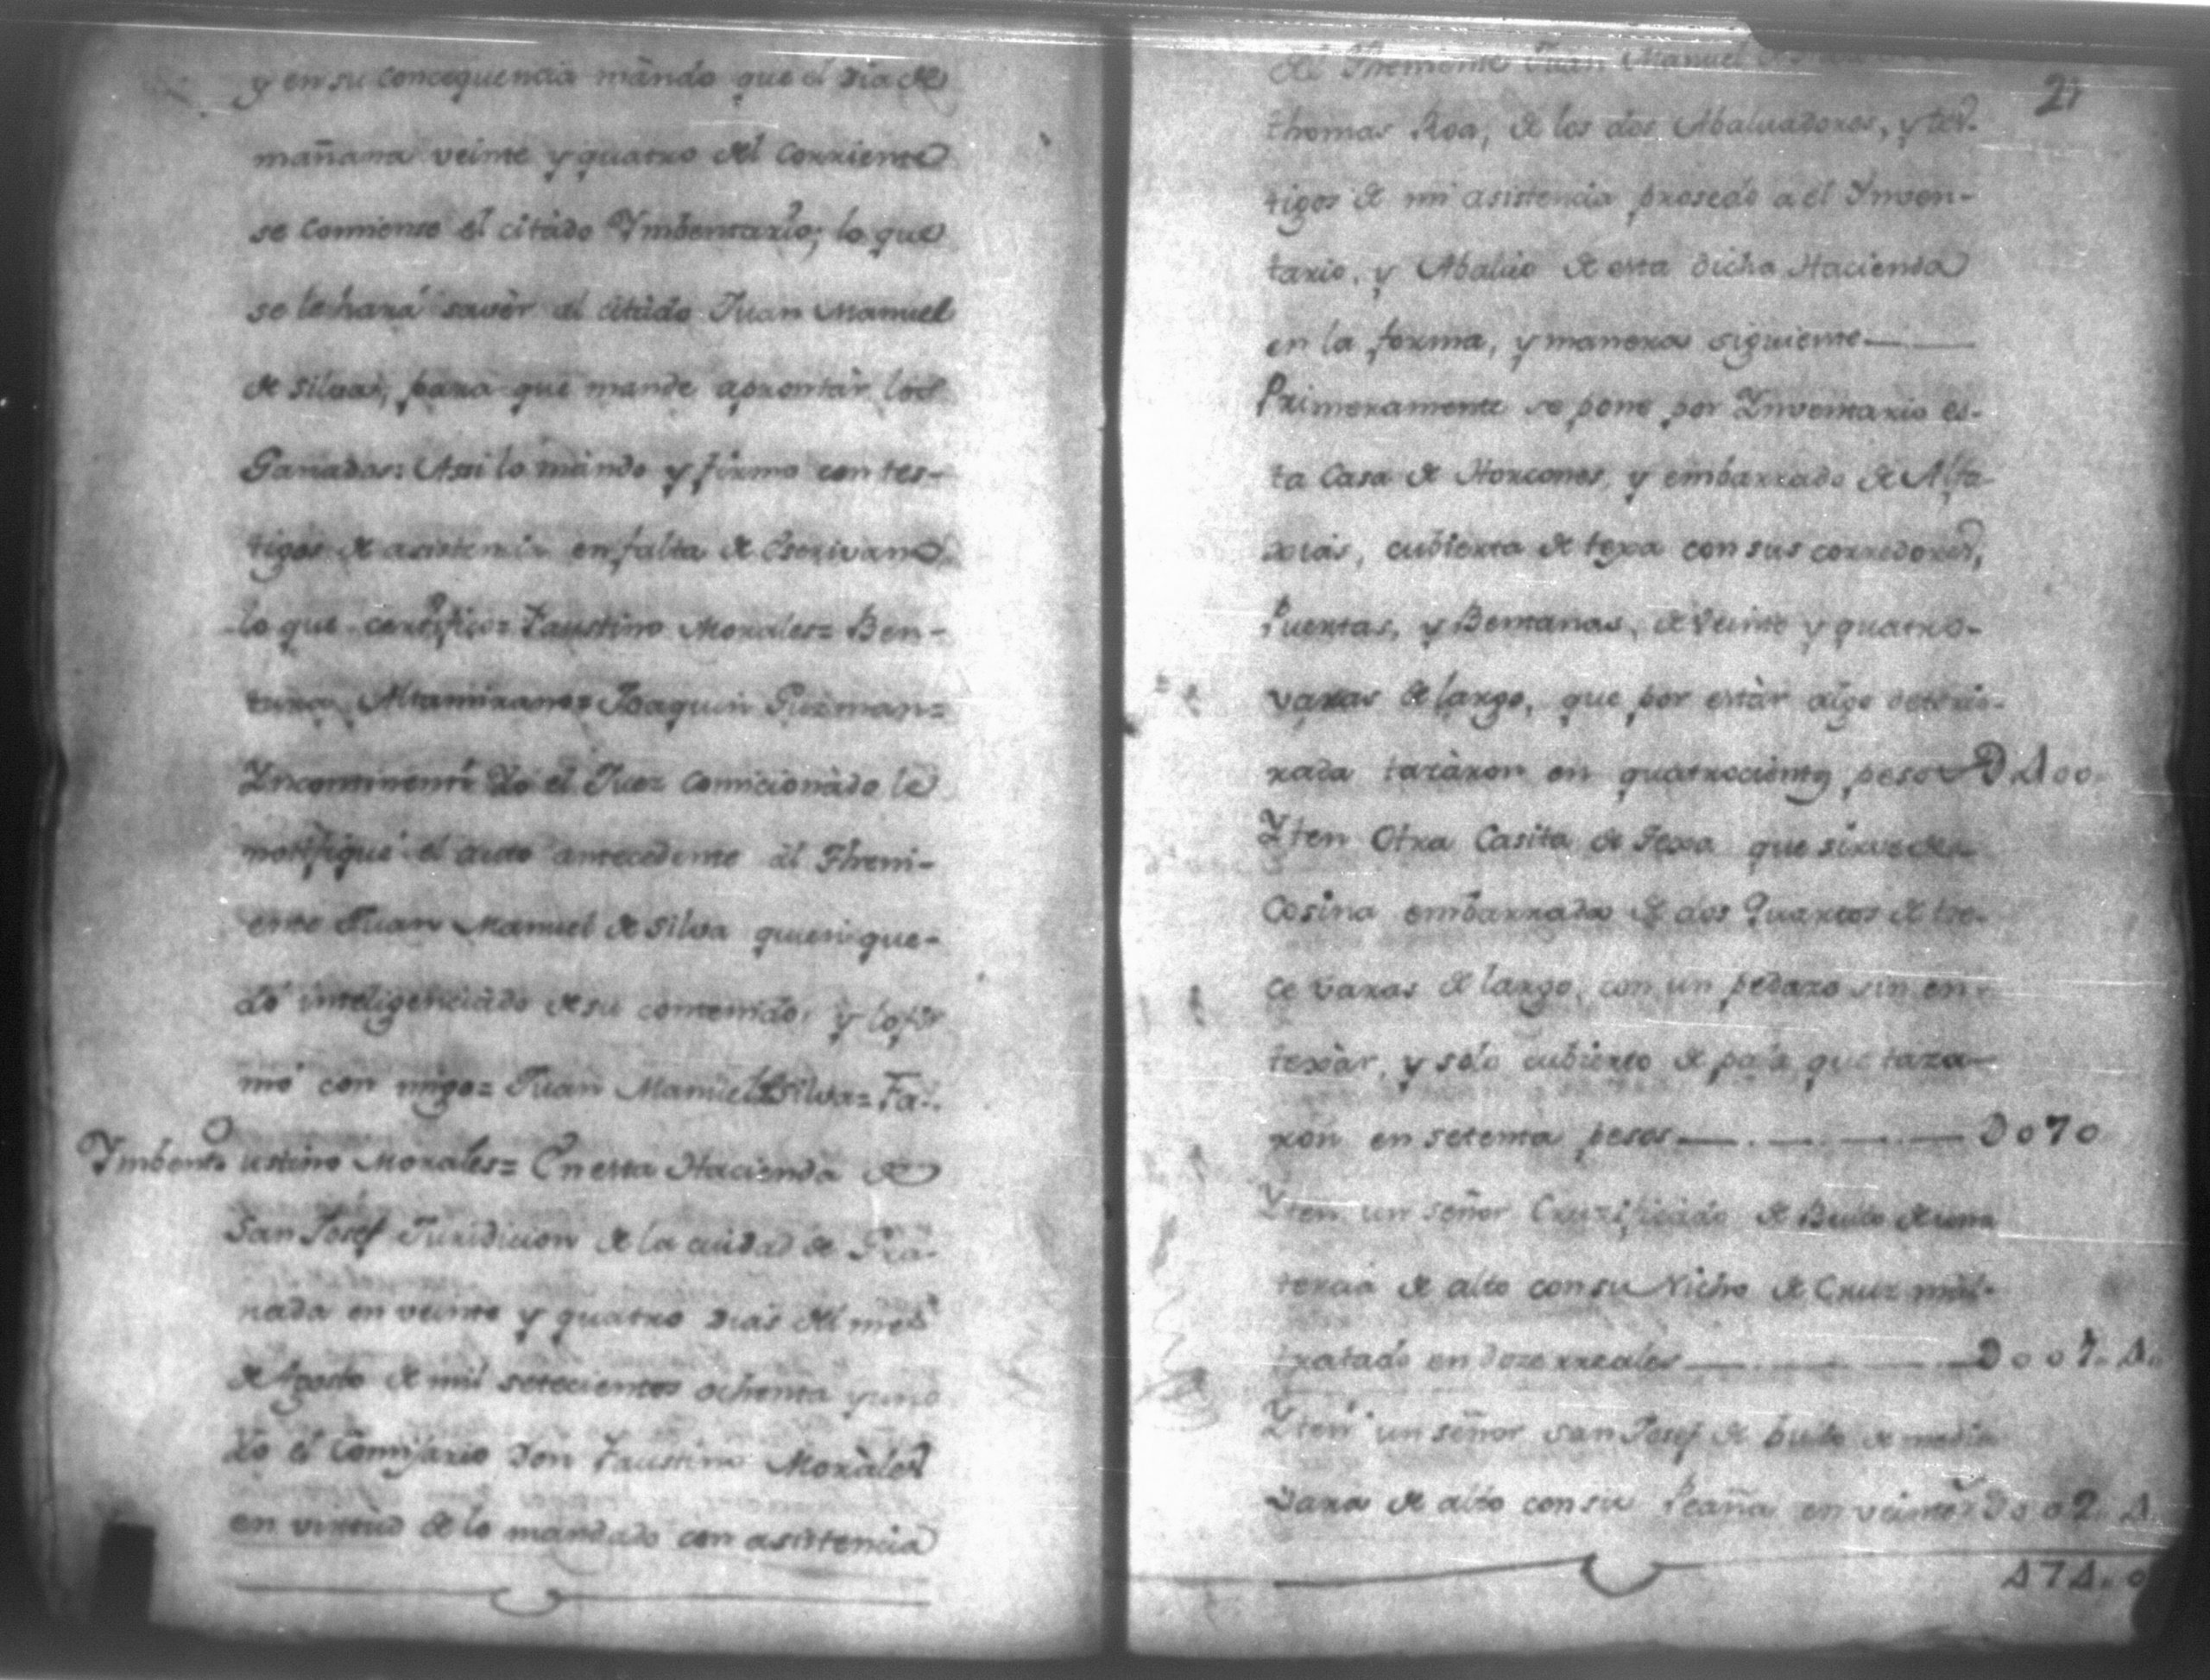 y en su concequencia mándo que el dia de
mañana veinte y quatro del corriente
se comiense el citádo Ymbentario; lo que
se le hará savèr al citádo Juan Manuel
de Silva, para que mande aprontàr los
Ganados: Assi lo mándo y firmo con tes-
tigos de asistencia en falta de Escrivano
lo que certifico= Faustino Morales= Ben-
tura Altamirano= Joaquin Guzman=
Yncontinenti Yo el Juez Comicionàdo le
notifiqué el auto antecedente àl Theni-
ente Juan Manuel de Silva quien que-
dó inteligenciàdo de su contenido, y lo fir
mó con migo= Juan Manuel de Silva= Fa-
Ymbento ustino Morales= En esta Hacienda de
San Josef Juridicion de la ciudad de Gra-
nada en veinte y quatro dias del mes
de Agosto de mil setecientos ochenta y uno
Yo el Comisario Don Faustino Moràles
en virtud de lo mandado con asistencia
21
del Theniente Juan Manuel
thomas Roa, de los dos Abaluadores, y tes-
tigos de mi asistencia prosedo a el Ynven-
tario, y Abalúo de esta dicha Hacienda
en la forma, y manera siguiente
Primeramente se pone por Ynventario es-
ta Casa de Horcones, y embarrado de Alfa-
xias, cubierta de texa con sus corredores,
Puertas, y Bentanas, de veinte y quatro
varas de largo, que por estàr algo deterio-
rada tazàron en quatrocientos pesos D 400
Yten Otra Casita de Texa que sirve de
Cosina embarrada de dos Quartos de tre-
ce varas de largo, con un pedazo sin en-
texàr, y sólo cubierto de paja que taza-
ron en setenta pesos D 070
Yten un señor Cruzificádo de Bulto de una
tercia de alto con su Nicho de Cruz mal-
tratado en doze rreales D 001. 4.
Yten un señor San Josef de bulto de media
vara de alto con su Peaña en veinte D 002. 4.
474. 0